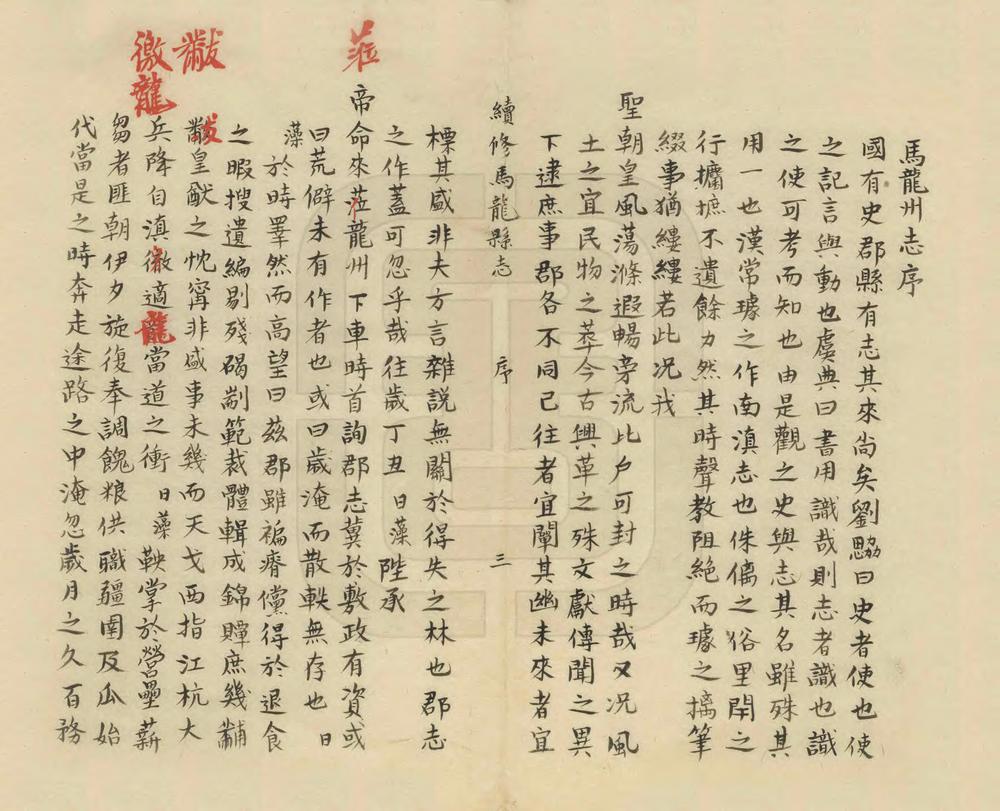 馬龍州志序
國有史郡縣有志其來尚矣劉勰曰史者使也使
之記言與動也虞典曰書用識哉則志者識也識
之使可考而知也由是觀之史與志其名雖殊其
用一也漢常璩之作南滇志也侏㒧之俗里閈之
行攟摭不遺餘力然其時聲教阻絶而璩之摛筆
綴事猶縷縷若此况我
聖朝皇風蕩滌遐暢旁流比户可封之時哉又况風
土之宜民物之莽今古興革之殊文獻傳聞之異
下逮庶事郡各不同已往者宜闡其幽未來者宜
續修馬龍縣志 序 三
標其盛非夫方言雜説無關於得失之林也郡志
之作蓋可忽乎哉往歲丁丑日藻陛承
莅
帝命來莅龍州下車時首詢郡志冀於敷政有資或
曰荒僻未有作者也或曰歲淹而散軼無存也日
藻於時睪然而高望曰兹郡雖褊瘠儻得於退食
之暇搜遺編剔殘碣剬範裁體輯成錦贉庶幾黼
黻
黻皇猷之忱寗非盛事未幾而天戈西指江杭大
徼龍
兵降自滇徼適龍當道之衝日藻鞅掌於營壘薪
芻者匪朝伊夕旋復奉調餽粮供職疆圉及瓜始
代當是之時奔走途路之中淹忽歲月之久百務